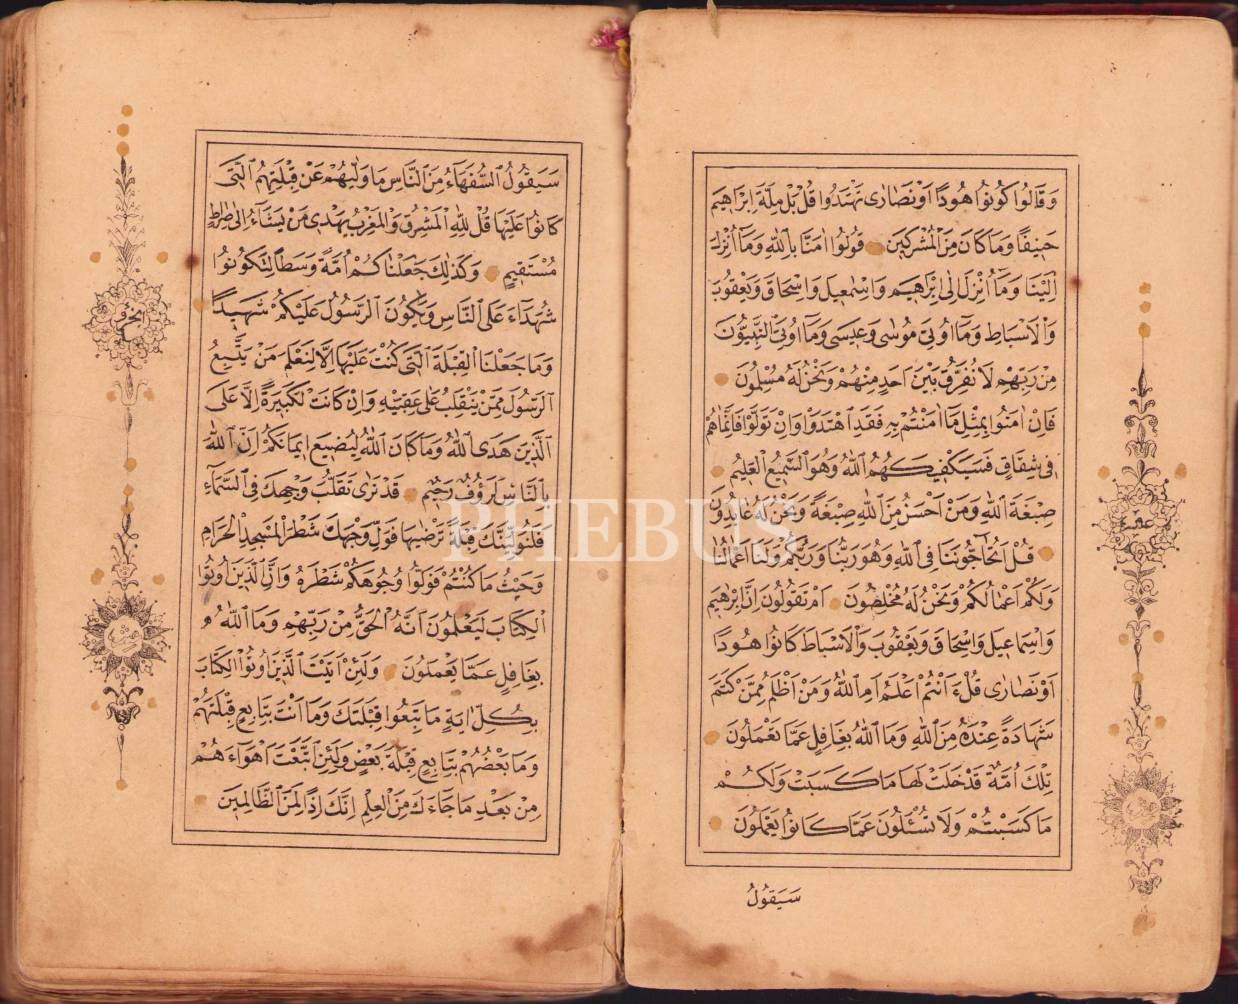 وَقَالُوا كُونُوا هُودًا اَوْ نَصَارٰى تَهْتَدُوا قُلْ بَلْ مِلَّةَ اِبْرٰهِيمَ
حَنِيفًا وَمَا كَانَ مِنَ الْمُشْرِكِينَ قُولُوا اٰمَنَّا بِاللّٰهِ وَمَا اُنْزِلَ
اِلَيْنَا وَمَا اُنْزِلَ اِلٰى اِبْرٰهِيمَ وَاِسْمٰعِيلَ وَاِسْحَاقَ وَيَعْقُوبَ
وَالْاَسْبَاطِ وَمَا اُوتِيَ مُوسٰى وَعِيسٰى وَمَا اُوتِيَ النَّبِيُّونَ
مِنْ رَبِّهِمْ لَا نُفَرِّقُ بَيْنَ اَحَدٍ مِنْهُمْ وَنَحْنُ لَهُ مُسْلِمُونَ
فَاِنْ اٰمَنُوا بِمِثْلِ مَا اٰمَنْتُمْ بِهِ فَقَدِ اهْتَدَوْا وَاِنْ تَوَلَّوْا فَاِنَّمَا هُمْ
فِي شِقَاقٍ فَسَيَكْفِيكَهُمُ اللّٰهُ وَهُوَ السَّمِيعُ الْعَلِيمُ
صِبْغَةَ اللّٰهِ وَمَنْ اَحْسَنُ مِنَ اللّٰهِ صِبْغَةً وَنَحْنُ لَهُ عَابِدُونَ
قُلْ اَتُحَاجُّونَنَا فِي اللّٰهِ وَهُوَ رَبُّنَا وَرَبُّكُمْ وَلَنَا اَعْمَالُنَا
وَلَكُمْ اَعْمَالُكُمْ وَنَحْنُ لَهُ مُخْلِصُونَ اَمْ تَقُولُونَ اِنَّ اِبْرٰهِيمَ
وَاِسْمَاعِيلَ وَاِسْحَاقَ وَيَعْقُوبَ وَالْاَسْبَاطَ كَانُوا هُودًا
اَوْ نَصَارٰى قُلْ ءَاَنْتُمْ اَعْلَمُ اَمِ اللّٰهُ وَمَنْ اَظْلَمُ مِمَّنْ كَتَمَ
شَهَادَةً عِنْدَهُ مِنَ اللّٰهِ وَمَا اللّٰهُ بِغَافِلٍ عَمَّا تَعْمَلُونَ
تِلْكَ اُمَّةٌ قَدْ خَلَتْ لَهَا مَا كَسَبَتْ وَلَكُمْ
مَا كَسَبْتُمْ وَلَا تُسْـَٔلُونَ عَمَّا كَانُوا يَعْمَلُونَ
سَيَقُولُ
عشر
سَيَقُولُ السُّفَهَاءُ مِنَ النَّاسِ مَا وَلّٰيهُمْ عَنْ قِبْلَتِهِمُ الَّتِي
كَانُوا عَلَيْهَا قُلْ لِلّٰهِ الْمَشْرِقُ وَالْمَغْرِبُ يَهْدِي مَنْ يَشَاءُ اِلٰى صِرَاطٍ
مُسْتَقِيمٍ وَكَذٰلِكَ جَعَلْنَاكُمْ اُمَّةً وَسَطًا لِتَكُونُوا
شُهَدَاءَ عَلَى النَّاسِ وَيَكُونَ الرَّسُولُ عَلَيْكُمْ شَهِيدًا
وَمَا جَعَلْنَا الْقِبْلَةَ الَّتِي كُنْتَ عَلَيْهَا اِلَّا لِنَعْلَمَ مَنْ يَتَّبِعُ
الرَّسُولَ مِمَّنْ يَنْقَلِبُ عَلٰى عَقِبَيْهِ وَاِنْ كَانَتْ لَكَبِيرَةً اِلَّا عَلَى
الَّذِينَ هَدَى اللّٰهُ وَمَا كَانَ اللّٰهُ لِيُضِيعَ اِيمَانَكُمْ اِنَّ اللّٰهَ
بِالنَّاسِ لَرَؤُفٌ رَحِيمٌ قَدْ نَرٰى تَقَلُّبَ وَجْهِكَ فِي السَّمَاءِ
فَلَنُوَلِّيَنَّكَ قِبْلَةً تَرْضٰيهَا فَوَلِّ وَجْهَكَ شَطْرَ الْمَسْجِدِ الْحَرَامِ
وَحَيْثُ مَا كُنْتُمْ فَوَلُّوا وُجُوهَكُمْ شَطْرَهُ وَاِنَّ الَّذِينَ اُوتُوا
الْكِتَابَ لَيَعْلَمُونَ اَنَّهُ الْحَقُّ مِنْ رَبِّهِمْ وَمَا اللّٰهُ
بِغَافِلٍ عَمَّا يَعْمَلُونَ وَلَئِنْ اَتَيْتَ الَّذِينَ اُوتُوا الْكِتَابَ
بِكُلِّ اٰيَةٍ مَا تَبِعُوا قِبْلَتَكَ وَمَا اَنْتَ بِتَابِعٍ قِبْلَتَهُمْ
وَمَا بَعْضُهُمْ بِتَابِعٍ قِبْلَةَ بَعْضٍ وَلَئِنِ اتَّبَعْتَ اَهْوَاءَهُمْ
مِنْ بَعْدِ مَا جَاءَكَ مِنَ الْعِلْمِ اِنَّكَ اِذًا لَمِنَ الظَّالِمِينَ
PHEBUS